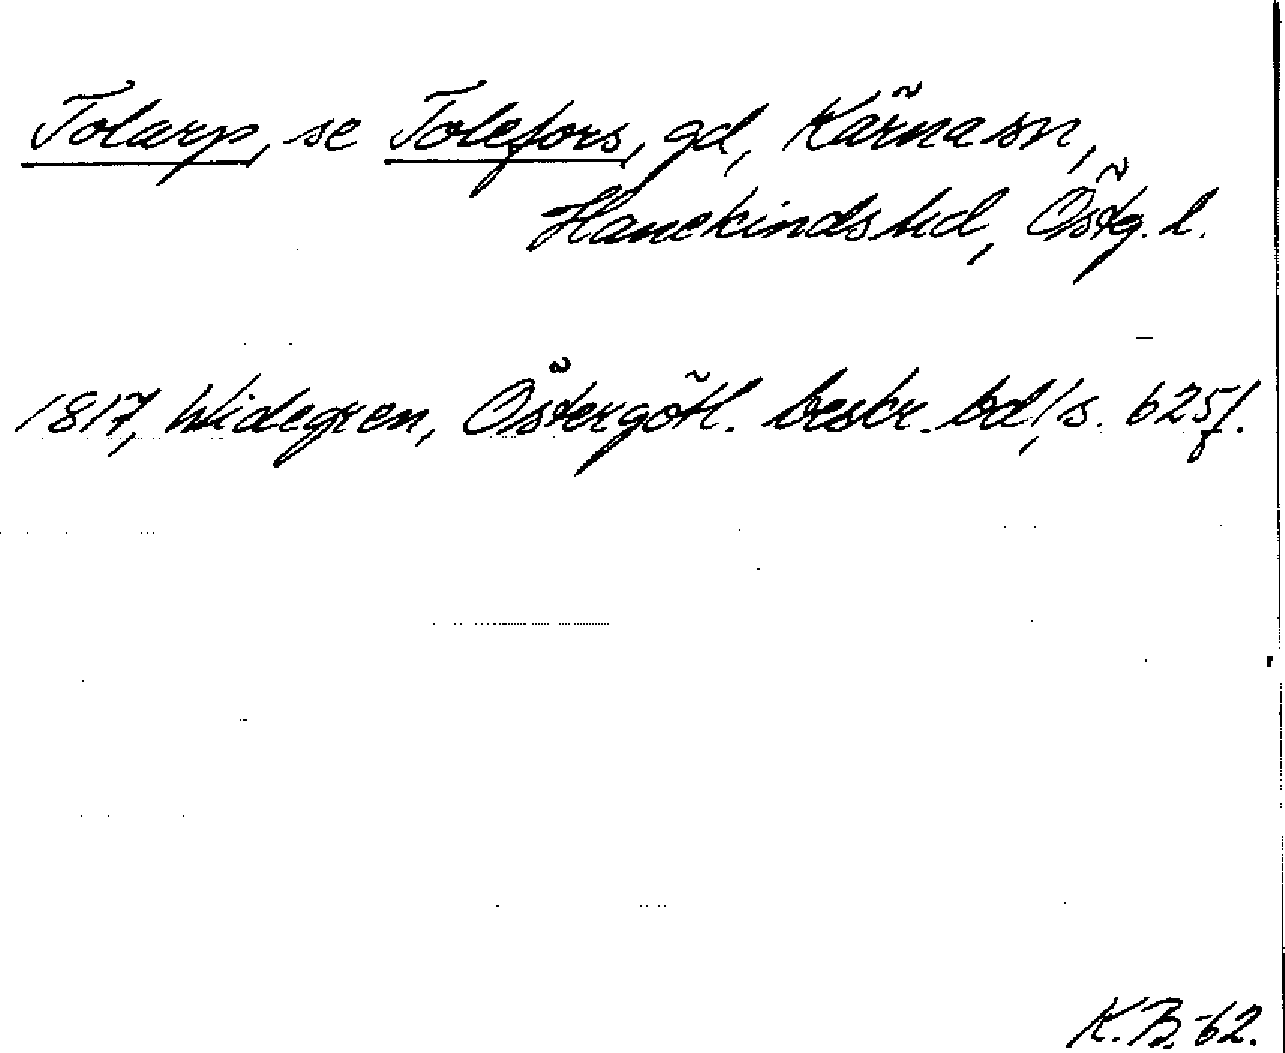 Tolarp, se Tolefors, gd, Kärna sn,
Hanekinds hd, Östg. l.
1817, Widegren, Östergötl. beskr. bd 1, s. 625 f.
K.B.-62.